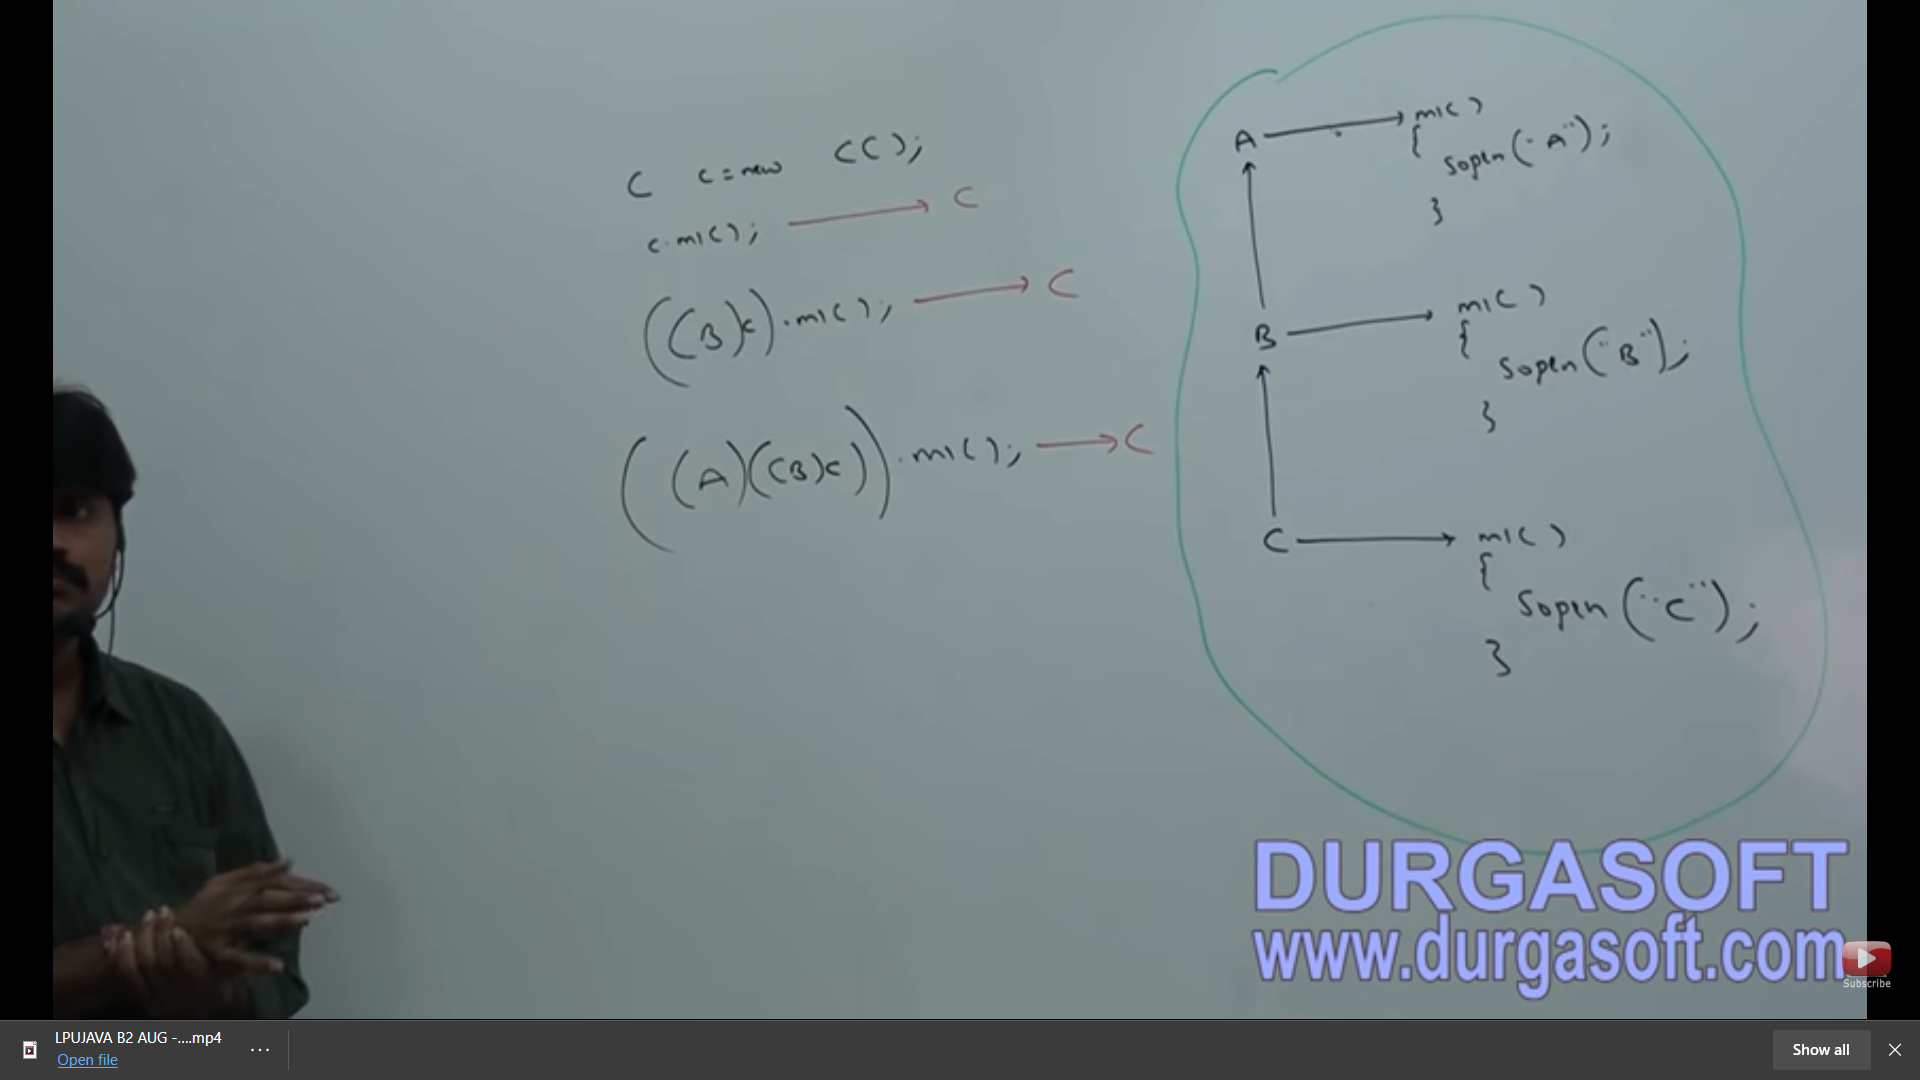 C c = new C();
c.m1(); → C
((B)c).m1(); → C
((A)((B)c)).m1(); → C
A → m1()
{
sopln("A");
}
B → m1()
{
sopln("B");
}
C → m1()
{
sopln("C");
}
DURGASOFT
www.durgasoft.com
Subscribe
LPUJAVA B2 AUG -....mp4
Open file
Show all